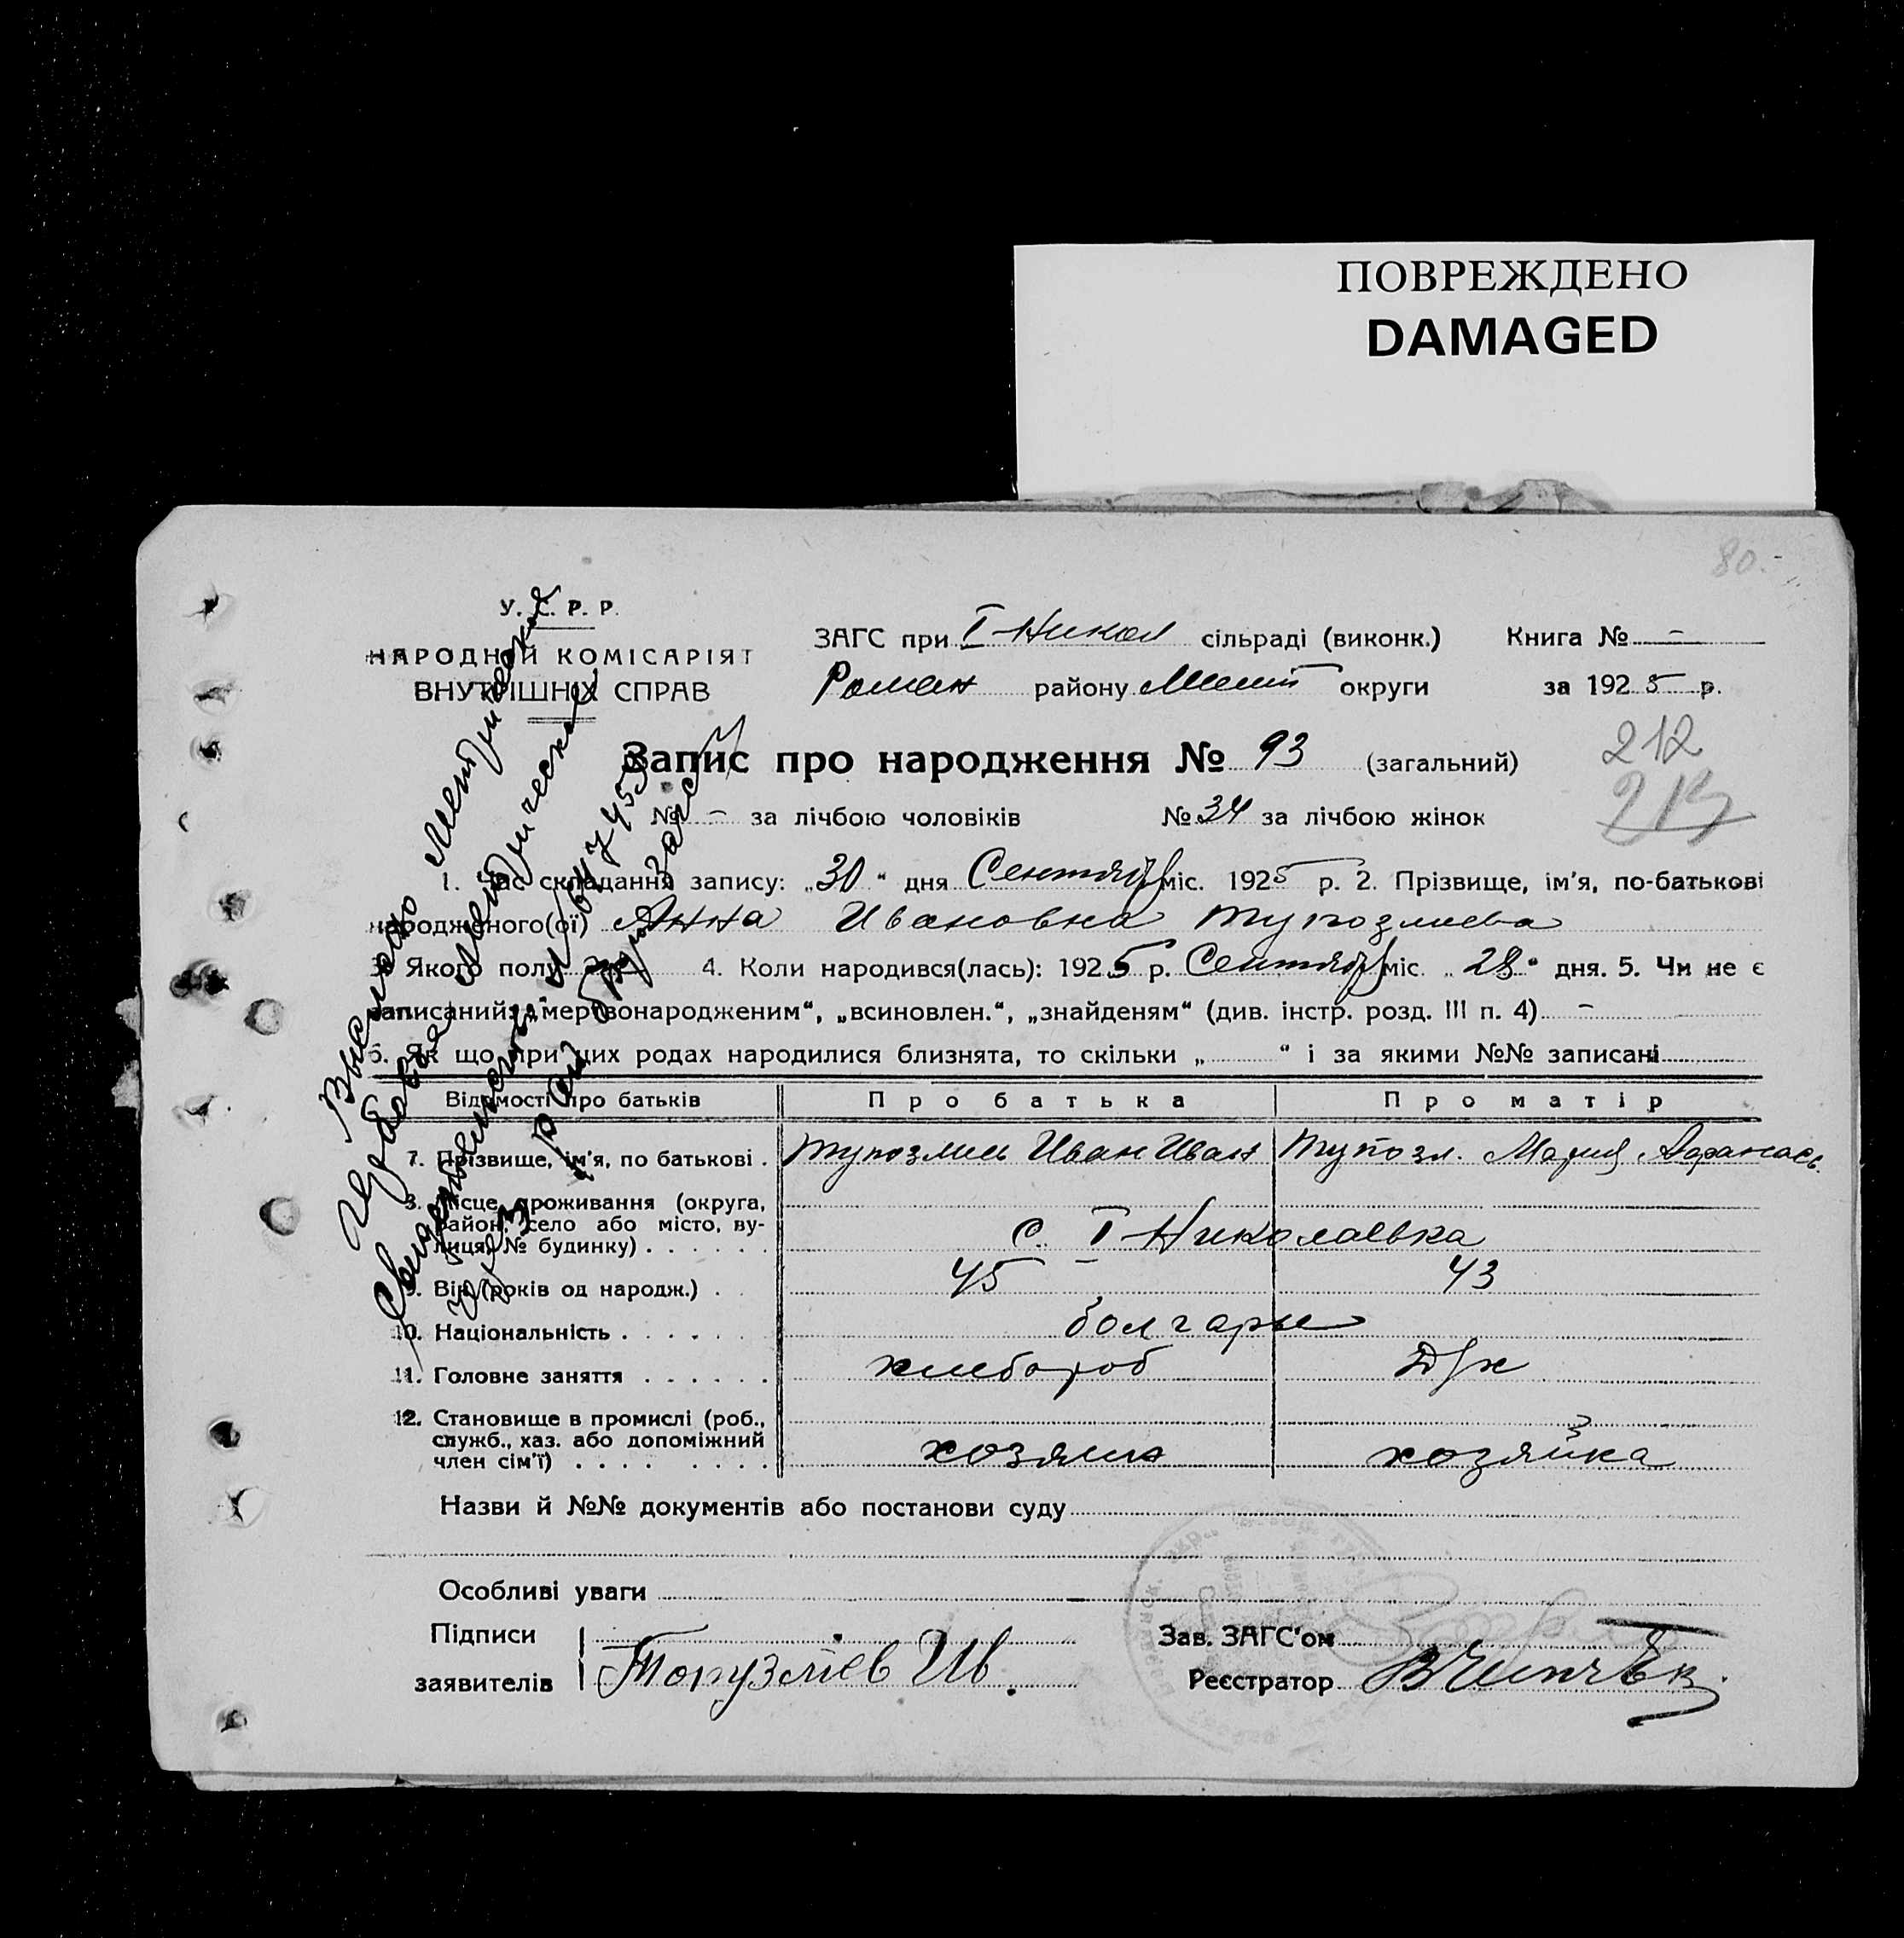 ПОВРЕЖДЕНО
DAMAGED
80.-
У. С. Р. Р.
НАРОДНІЙ КОМІСАРІЯТ
ВНУТРІШНІХ СПРАВ
ЗАГС при I Никол сільраді (виконк.) Книга № –
Роман району округи за 1925 р.
Запис про народження № 93 (загальний)
212
№ – за лічбою чоловіків № 34 за лічбою жінок
1. Час складання запису: „30“ дня Сентябр міс. 1925 р. 2. Прізвище, ім'я, по-батькові
народженого(ої) Анна Ивановна Тупозлиева
3. Якого полу 4. Коли народився(лась): 1925 р. Сентябр міс. „28“ дня. 5. Чи не є
записаний: „мертвонародженим“, „всиновлен.“, „знайденям“ (див. інстр. розд. III п. 4) –
6. Як що при цих родах народилися близнята, то скільки „ “ і за якими №№ записані
Відомості про батьків Про батька Про матір
7. Прізвище, ім'я, по батькові . Иван Иван Тупозл. Мария Афанась.
8. Місце проживання (округа,
район, село або місто, ву-
лиця, № будинку) . . . . . . с. I Николаевка
9. Вік (років од народж.) . . 45 43
10. Національність . . . . . . . болгары
11. Головне заняття . . . . . . хлебороб Д/х
12. Становище в промислі (роб.,
служб., хаз. або допоміжний
член сім'ї) . . . . . . . . хозяин хозяйка
Назви й №№ документів або постанови суду
Особливі уваги
Підписи
заявителів Топузлiев Ив.
Зав. ЗАГС'ом
Реєстратор
Выслано
Свидетельство